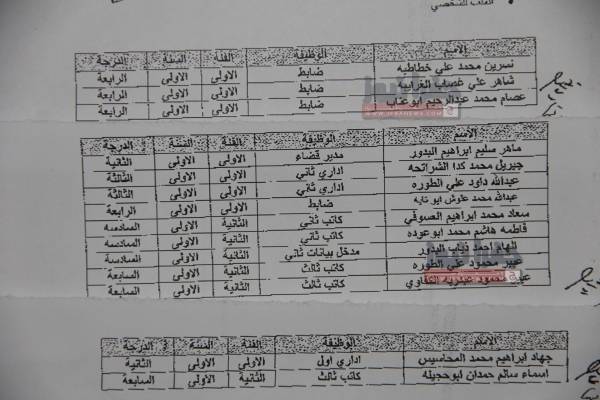 الملف الشخصي
الاسم الوظيفة الفئة السنة الدرجة
نسرين محمد علي خطاطبه ضابط الاولى الاولى الرابعة
شاهر علي غصاب الغرايبه ضابط الاولى الاولى الرابعة
عصام محمد عبدالرحيم ابوعناب ضابط الاولى الاولى الرابعة
الاسم الوظيفة الفئة السنة الدرجة
ماهر سليم ابراهيم البدور مدير قضاء الاولى الاولى الثانية
جبريل محمد كدا الشراتحه اداري ثاني الاولى الاولى الثالثة
عبدالله داود علي الطوره اداري ثاني الاولى الاولى الثالثة
عبدالله محمد علوش ابو تايه ضابط الاولى الاولى الرابعة
سعاد محمد ابراهيم الصوفي كاتب ثاني الثانية الاولى السادسه
فاطمه هاشم محمد ابوعوده كاتب ثاني الثانية الاولى السادسه
الهام احمد ذياب البدور مدخل بيانات ثاني الثانية الاولى السادسة
عبير محمود علي الطوره كاتب ثالث الثانية الاولى السابعة
محمود كاتب ثالث الثانية الاولى السابعة
الاسم الوظيفة الفئة السنة الدرجة
جهاد ابراهيم محمد المحاسيس اداري اول الاولى الاولى الثانية
اسماء سالم حمدان ابوحجيله كاتب ثالث الثانية الاولى السابعة